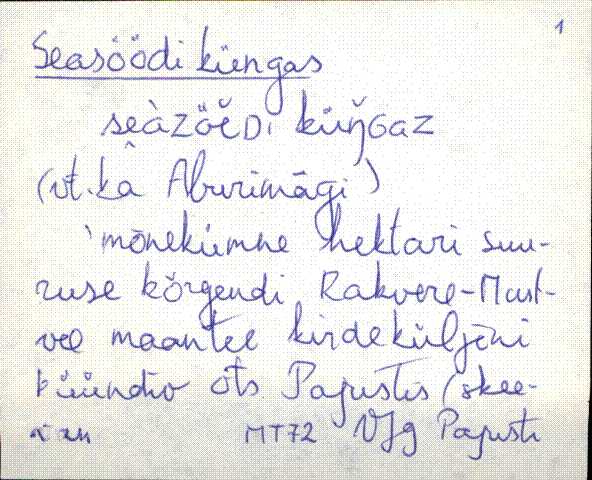 1
Seasöödi küngas
seàzöĕDi küŋGaz
(vt. ka Aburimägi)
mõnekümne hektari suu-
ruse kõrgendi Rakvere-Must-
vee maantee kirdeküljeni
küündiv ots Papustis (skee-
MT72 VJg Papusti